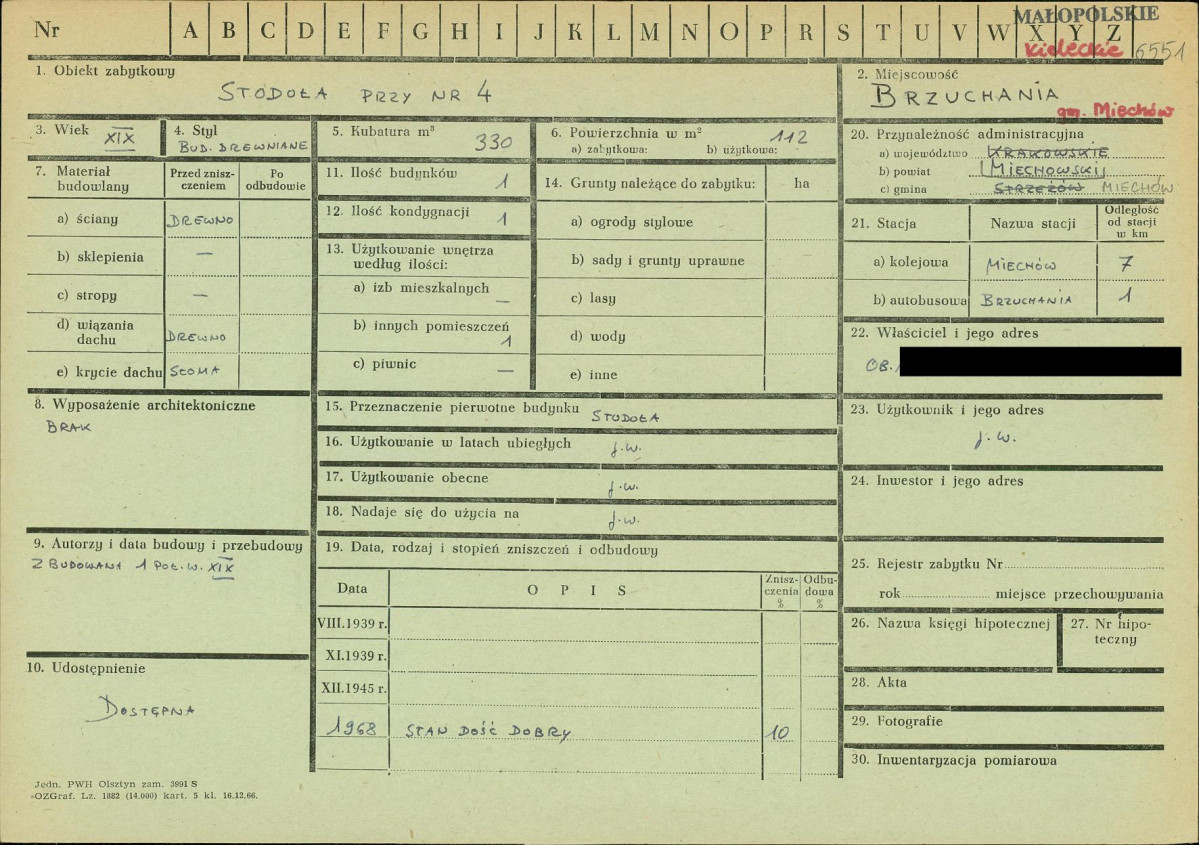 Nr A B C D E F G H I J K L M N O P R S T U V W X Y Z
MAŁOPOLSKIE
kieleckie 6551
1. Obiekt zabytkowy
STODOŁA PRZY NR 4
2. Miejscowość
BRZUCHANIA
gm. Miechów
3. Wiek XIX
4. Styl
BUD. DREWNIANE
5. Kubatura m³
330
6. Powierzchnia w m² 112
a) zabytkowa: b) użytkowa:
7. Materiał budowlany
Przed zniszczeniem
Po odbudowie
a) ściany DREWNO
b) sklepienia —
c) stropy —
d) wiązania dachu DREWNO
e) krycie dachu SŁOMA
8. Wyposażenie architektoniczne
BRAK
9. Autorzy i data budowy i przebudowy
ZBUDOWANA 1 POŁ. W. XIX
10. Udostępnienie
DOSTĘPNA
11. Ilość budynków
1
12. Ilość kondygnacji
1
13. Użytkowanie wnętrza
według ilości:
a) izb mieszkalnych
—
b) innych pomieszczeń
1
c) piwnic —
14. Grunty należące do zabytku: ha
a) ogrody stylowe
b) sady i grunty uprawne
c) lasy
d) wody
e) inne
15. Przeznaczenie pierwotne budynku STODOŁA
16. Użytkowanie w latach ubiegłych j.w.
17. Użytkowanie obecne j.w.
18. Nadaje się do użycia na j.w.
19. Data, rodzaj i stopień zniszczeń i odbudowy
Data
OPIS
Zniszczenia %
Odbudowa %
VIII.1939 r.
XI.1939 r.
XII.1945 r.
1968 STAN DOŚĆ DOBRY 10
20. Przynależność administracyjna
a) województwo KRAKOWSKIE
b) powiat MIECHOWSKI
c) gmina STRZEŻÓW MIECHÓW
21. Stacja
Nazwa stacji
Odległość
od stacji
w km
a) kolejowa MIECHÓW 7
b) autobusowa BRZUCHANIA 1
22. Właściciel i jego adres
OB.
23. Użytkownik i jego adres
j.w.
24. Inwestor i jego adres
25. Rejestr zabytku Nr
rok miejsce przechowywania
26. Nazwa księgi hipotecznej
27. Nr hipoteczny
28. Akta
29. Fotografie
30. Inwentaryzacja pomiarowa
Jedn. PWH Olsztyn zam. 3991 S
OZGraf. Lz. 1882 (14.000) kart. 5 kl. 16.12.66.